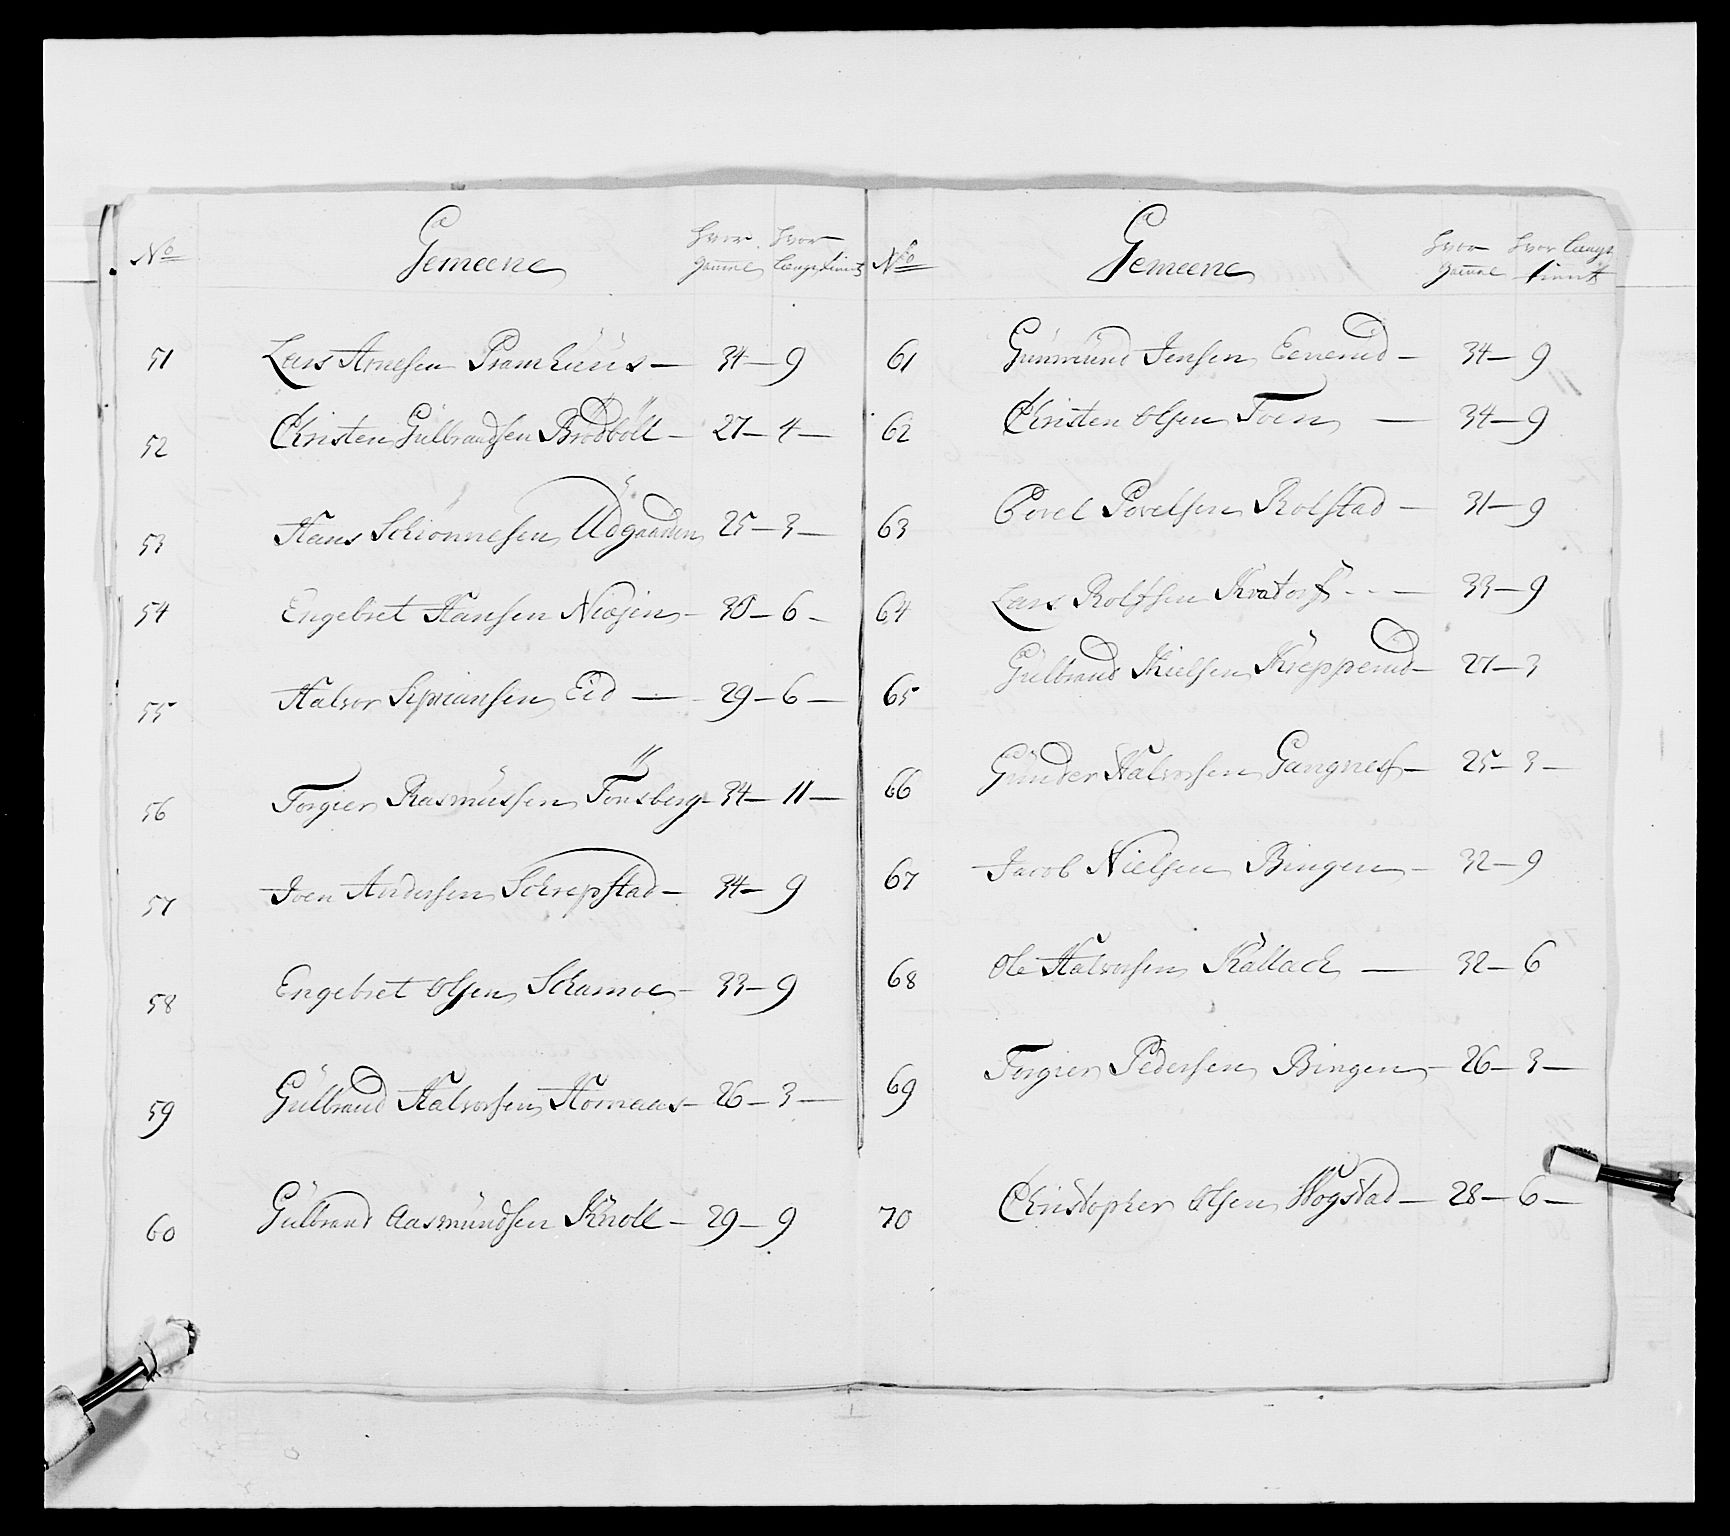 No Gemeene hvor gamle hvor lenge tient
51 Lars Arnesen Pramhuus — 34 — 9
52 Christen Gulbrandsen Brodböll — 27 — 4 —
53 Hans Schionnesen Udgaarden 25 — 3 —
54 Engebret Hansen Niosjen — 30 — 6 —
55 Halvor Sipriansen Eid — 29 — 6 —
56 Torgier Rasmussen Tonsberg — 34 — 11 —
57 Joen Andersen Schrepstad — 34 — 9
58 Engebret Olsen Schamoe — 33 — 9
59 Gulbrand Halvorsen Homaas — 26 — 3 —
60 Gulbrand Aasmundsen Knoll — 29 — 9
No Gemeene hvor gamle hvor længe tient
61 Gunmund Jensen Eenerud — 34 — 9
62 Christen Olsen Toen — 34 — 9
63 Povel Povelsen Rolstad — 31 — 9
64 Lars Rolfsen Kratorf — 33 — 9
65 Gulbrand Kielsen Krepperud — 27 — 3
66 Gunder Halvorsen Gangnes — 25 — 3 —
67 Jacob Nielsen Bingen — 32 — 9
68 Ole Halvorsen Kallach — 32 — 6
69 Torgier Pedersen Bingen — 26 — 3 —
70 Christopher Olsen Hogstad — 28 — 6 —